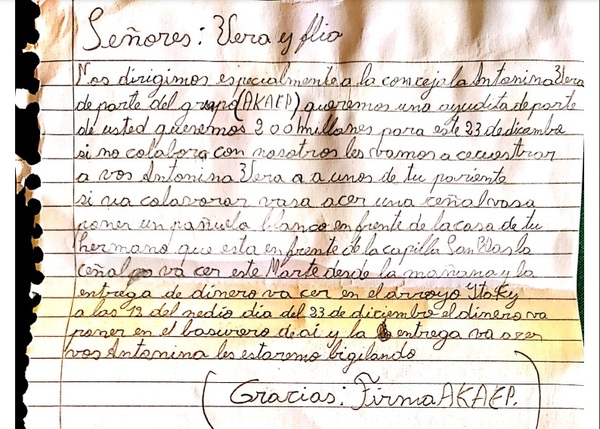 Señores: Vera y flia
Nos dirigimos especialmente a la concejala Antonina Vera
de parte del grupo (AKAEP) queremos una ayudita de parte
de usted queremos 200 millones para este 23 de dicembre
si no colabora con nosotros les vamos a cecuestrar
a vos Antonina Vera a a unos de tu pariente
si va colavorar vasa acer una ceñal vasa
poner un pañuelo blanco en frente de la casa de tu
hermano que esta en frente de la capilla San Blas la
ceñal va cer este Marte desde la mañana y la
entrega de dinero va cer en el arroyo Ytaky
a las 12 del medio dia del 23 de diciembre el dinero va
poner en el basurero de ai y la entrega va acer
vos Antonina les estaremo bigilando
Gracias: Firma AKAEP.